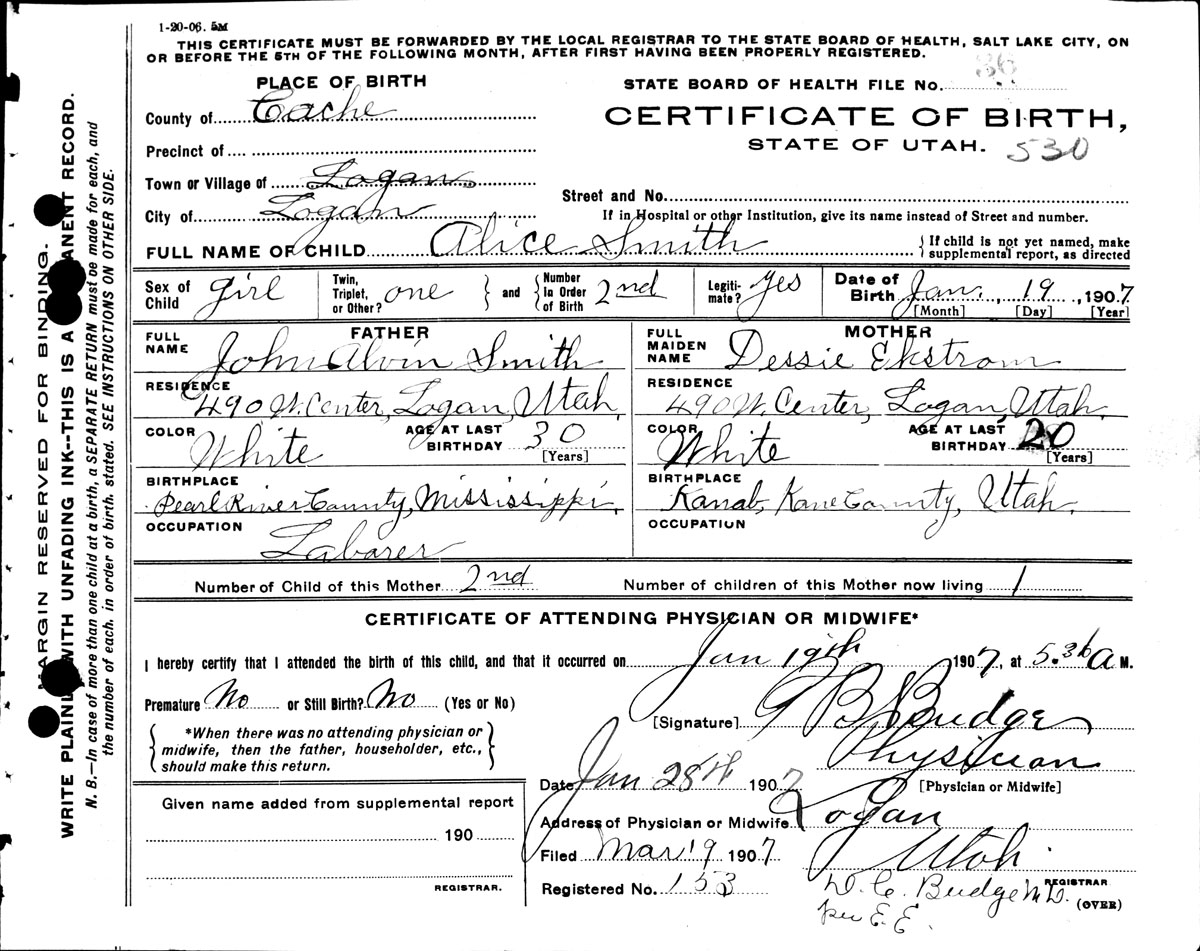 1-20-06. 5M
THIS CERTIFICATE MUST BE FORWARDED BY THE LOCAL REGISTRAR TO THE STATE BOARD OF HEALTH, SALT LAKE CITY, ON
OR BEFORE THE 5TH OF THE FOLLOWING MONTH, AFTER FIRST HAVING BEEN PROPERLY REGISTERED.
PLACE OF BIRTH
STATE BOARD OF HEALTH FILE No. 36
County of Cache
CERTIFICATE OF BIRTH,
STATE OF UTAH. 530
Precinct of
Town or Village of Logan
Street and No.
City of Logan
If in Hospital or other Institution, give its name instead of Street and number.
FULL NAME OF CHILD Alice Smith
If child is not yet named, make
supplemental report, as directed
Sex of Child girl Twin, Triplet, or Other? one and Number In Order of Birth 2nd Legiti-mate? Yes Date of Birth Jan. 19, 1907
[Month] [Day] [Year]
FATHER
FULL NAME John Alvin Smith
RESIDENCE
490 W. Center, Logan, Utah,
COLOR White AGE AT LAST BIRTHDAY 30
[Years]
BIRTHPLACE
Pearl River County, Mississippi,
OCCUPATION
Laborer
MOTHER
FULL MAIDEN NAME Dessie Ekstrom
RESIDENCE
490 W. Center, Logan, Utah,
COLOR White AGE AT LAST BIRTHDAY 20
[Years]
BIRTHPLACE
Kanab, Kane County, Utah,
OCCUPATION
Number of Child of this Mother 2nd Number of children of this Mother now living 1
CERTIFICATE OF ATTENDING PHYSICIAN OR MIDWIFE*
I hereby certify that I attended the birth of this child, and that it occurred on Jan 19th 1907, at 5.36 A M.
Premature No or Still Birth? No (Yes or No)
[Signature] Budge
*When there was no attending physician or
midwife, then the father, householder, etc.,
should make this return.
Physician
[Physician or Midwife]
Date Jan 28th 1907
Address of Physician or Midwife Logan
Utah.
Given name added from supplemental report
190
REGISTRAR.
Filed Mar 19 1907
Registered No. 153
D. C. Budge M.D. REGISTRAR
per E. E.
(OVER)
MARGIN RESERVED FOR BINDING.
WRITE PLAINLY WITH UNFADING INK--THIS IS A PERMANENT RECORD.
N. B.—In case of more than one child at a birth, a SEPARATE RETURN must be made for each, and
the number of each, in order of birth, stated. SEE INSTRUCTIONS ON OTHER SIDE.